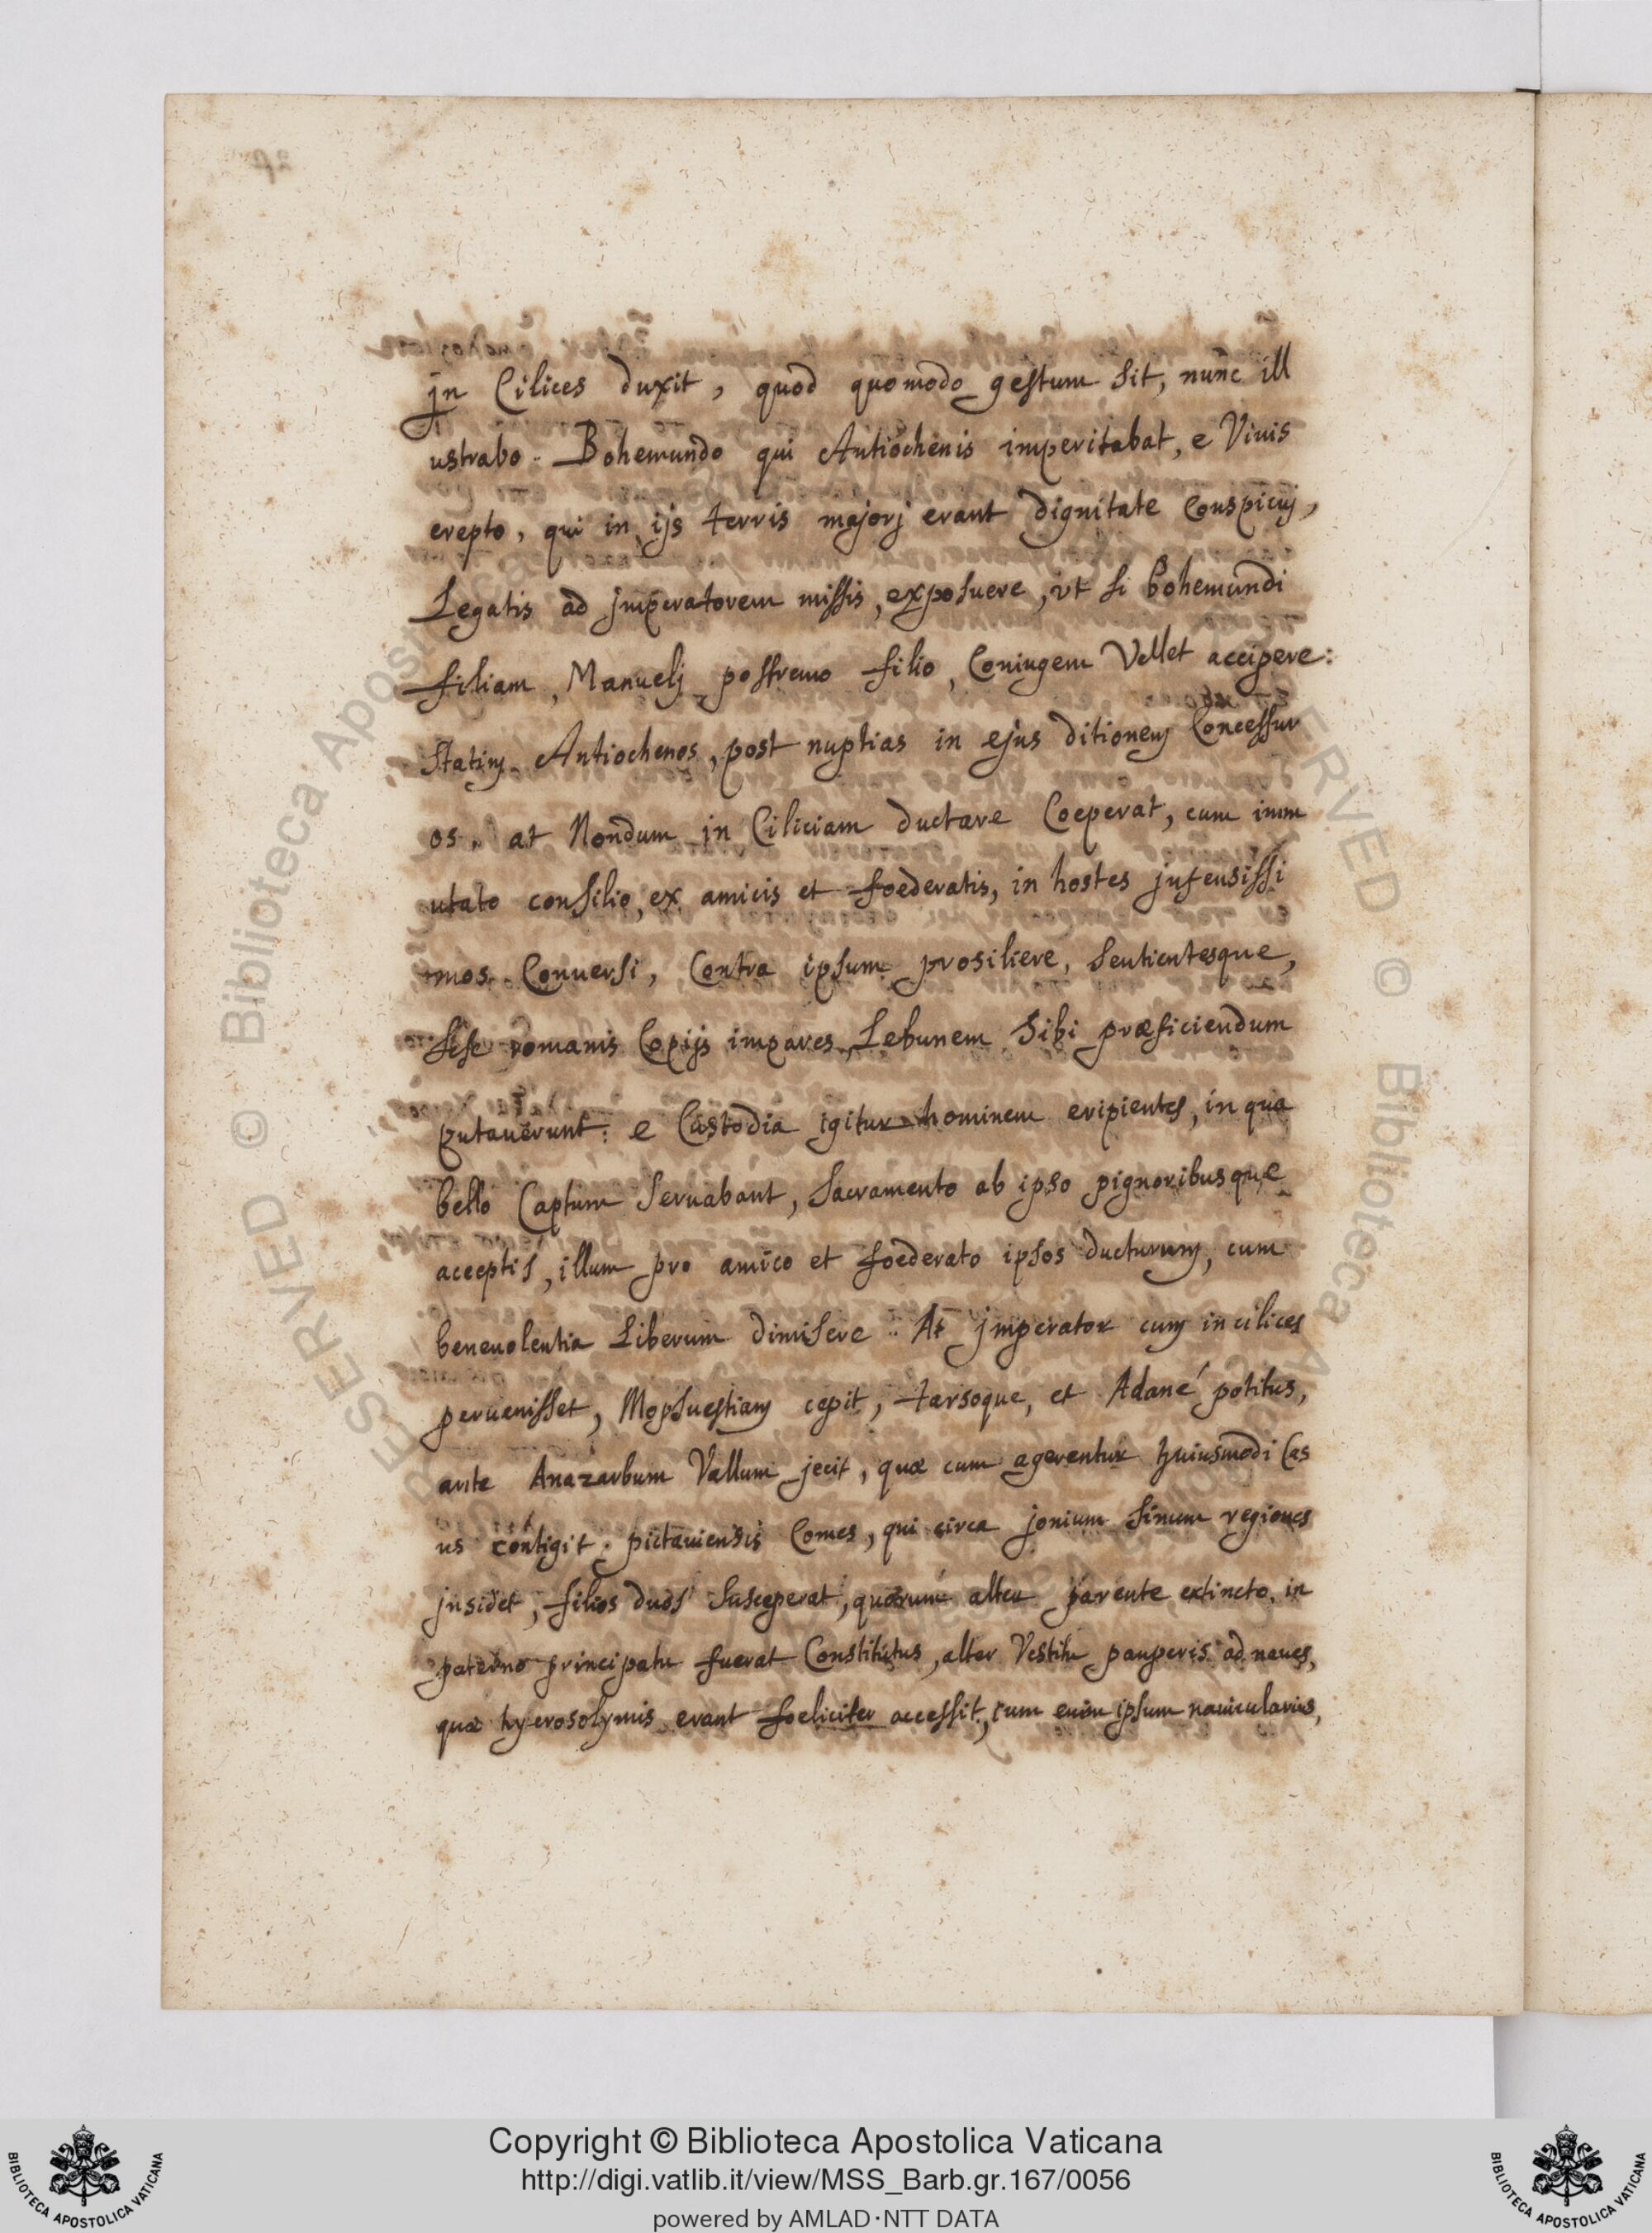 jn Cilices duxit, quod quomodo gestum sit, nunc ill
ustrabo. Bohemundo qui Antiochenis imperitabat, e Viuis
erepto, qui in ijs terris majorj erant dignitate Conspicuj,
Legatis ad jmperatorem missis, exposuere, vt si bohemundi
filiam, Manuelj postremo filio, Coniugem Vellet accipere:
Statim Antiochenos, post nuptias in ejus ditionem Concessur
os. at Nondum in Ciliciam ductare Coeperat, cum imm
utato consilio, ex amicis et foederatis, in hostes jnfensissi
mos Conuersi, Contra ipsum prosiliere, sentientesque,
sese romanis Copijs impares, Lebunem Sibi præficiendum
putauerunt: e Custodia igitur hominem eripientes, in qua
bello Captum seruabant, sacramento ab ipso pignoribusque
acceptis, illum pro amico et foederato ipsos ducturum, cum
beneuolentia Liberum dimisere. At jmperator cum in cilices
peruenisset, Mopsuestiam cepit, tarsoque, et Adané potitus,
ante Anazarbum Vallum jecit, quæ cum agerentur huiusmodi Cas
us contigit. pictauiensis Comes, qui circa jonium sinum regiones
jnsidet, filios duos susceperat, quorum alter parente extincto, in
paterno principatu fuerat Constitutus, alter Vestitu pauperis ad naues,
quæ hyerosolymis erant foeliciter accessit, cum enim ipsum nauicularius,
RESERVED © Biblioteca Apostolica
RESERVED © Biblioteca A
BIBLIOTECA APOSTOLICA VATICANA
Copyright © Biblioteca Apostolica Vaticana
http://digi.vatlib.it/view/MSS_Barb.gr.167/0056
powered by AMLAD·NTT DATA
BIBLIOTECA APOSTOLICA VATICANA